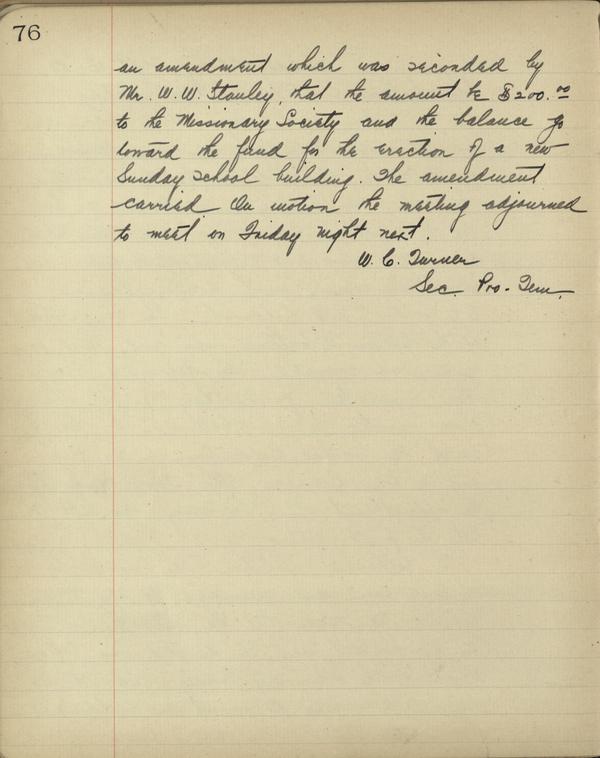 76
an amendment which was seconded by
Mr. W. W. Stanley, that the amount be $200.00
to the Missionary Society and the balance go
toward the fund for the erection of a new
Sunday School building. The amendment
carried. On motion the meeting adjourned
to meet on Friday night next.
W. C. Turner
Sec. Pro-Tem.